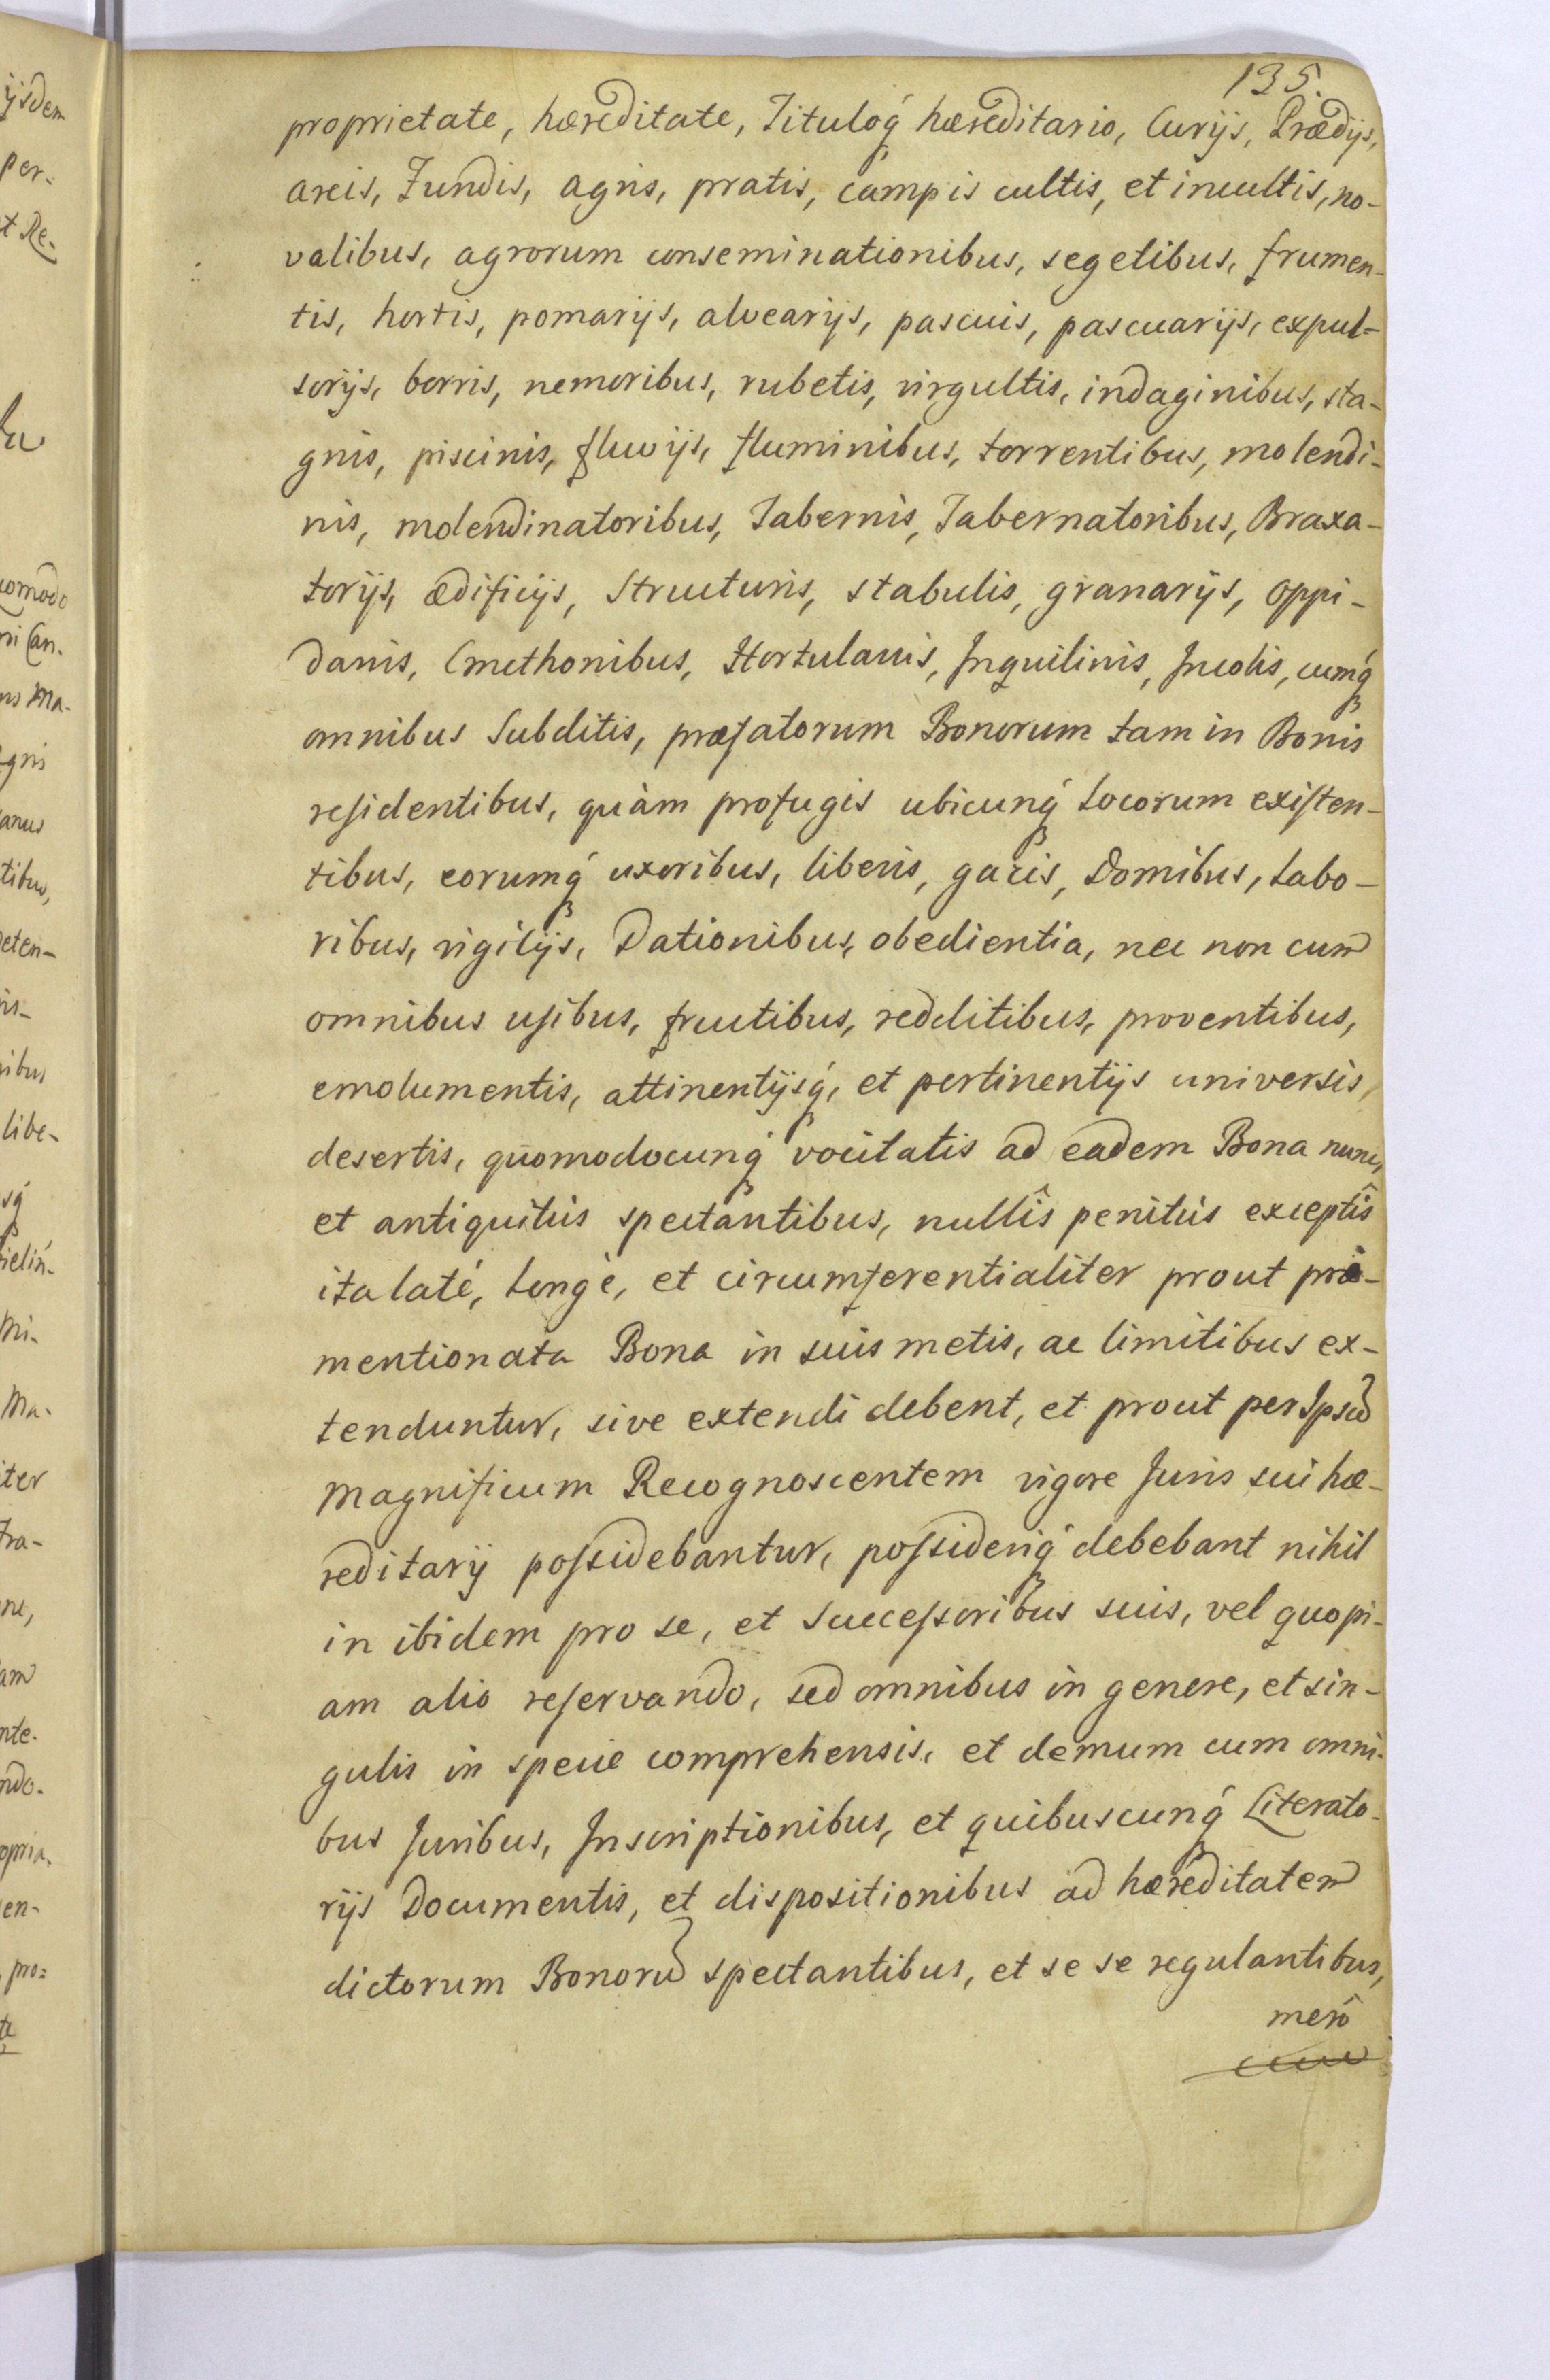 135.
proprietate, hæreditate, Tituloq́ hæreditario, Curijs, Prædijs,
areis, Fundis, agris, pratis, campis cultis, et incultis, no-
valibus, agrorum conseminationibus, segetibus, frumen-
tis, hortis, pomarijs, alvearijs, pascuis, pascuarijs, expul-
sorijs, borris, nemoribus, rubetis, virgultis, indaginibus, sta-
gnis, piscinis, fluvijs, fluminibus, torrentibus, molendi-
nis, molendinatoribus, Tabernis, Tabernatoribus, Braxa-
torijs, ædificijs, Structuris, stabulis, granarijs, oppi-
danis, Cmethonibus, Hortulanis, Inquilinis, Incolis, cumq́
omnibus Subditis, præfatorum Bonorum tam in Bonis
residentibus, quàm profugis ubicunq́ locorum existen-
tibus, eorumq́ uxoribus, liberis, gazis, Domibus, labo-
ribus, vigilijs, Dationibus, obedientia, nec non cum
omnibus usibus, fructibus, redditibus, proventibus,
emolumentis, attinentijsq́, et pertinentijs universis,
desertis, quomodocunq́ vocitatis ad eadem Bona nunc,
et antiquitùs spectantibus, nullîs penitùs exceptîs
ita latè, longè, et circumferentialiter prout præ-
mentionata Bona in suis metis, ac limitibus ex-
tenduntur, sive extendi debent, et prout per Ipsũ
Magnificum Recognoscentem vigore Juris sui hæ-
reditarij possidebantur, possideriq́ debebant nihil
in ibidem pro se, et Successoribus suis, vel quopi-
am alio reservando, sed omnibus in genere, et sin-
gulis in specie comprehensis, et demum cum omni-
bus Juribus, Inscriptionibus, et quibuscunq́ Literato-
rijs Documentis, et dispositionibus ad hæreditatem
dictorum Bonorũ spectantibus, et se se regulantibus,
merô